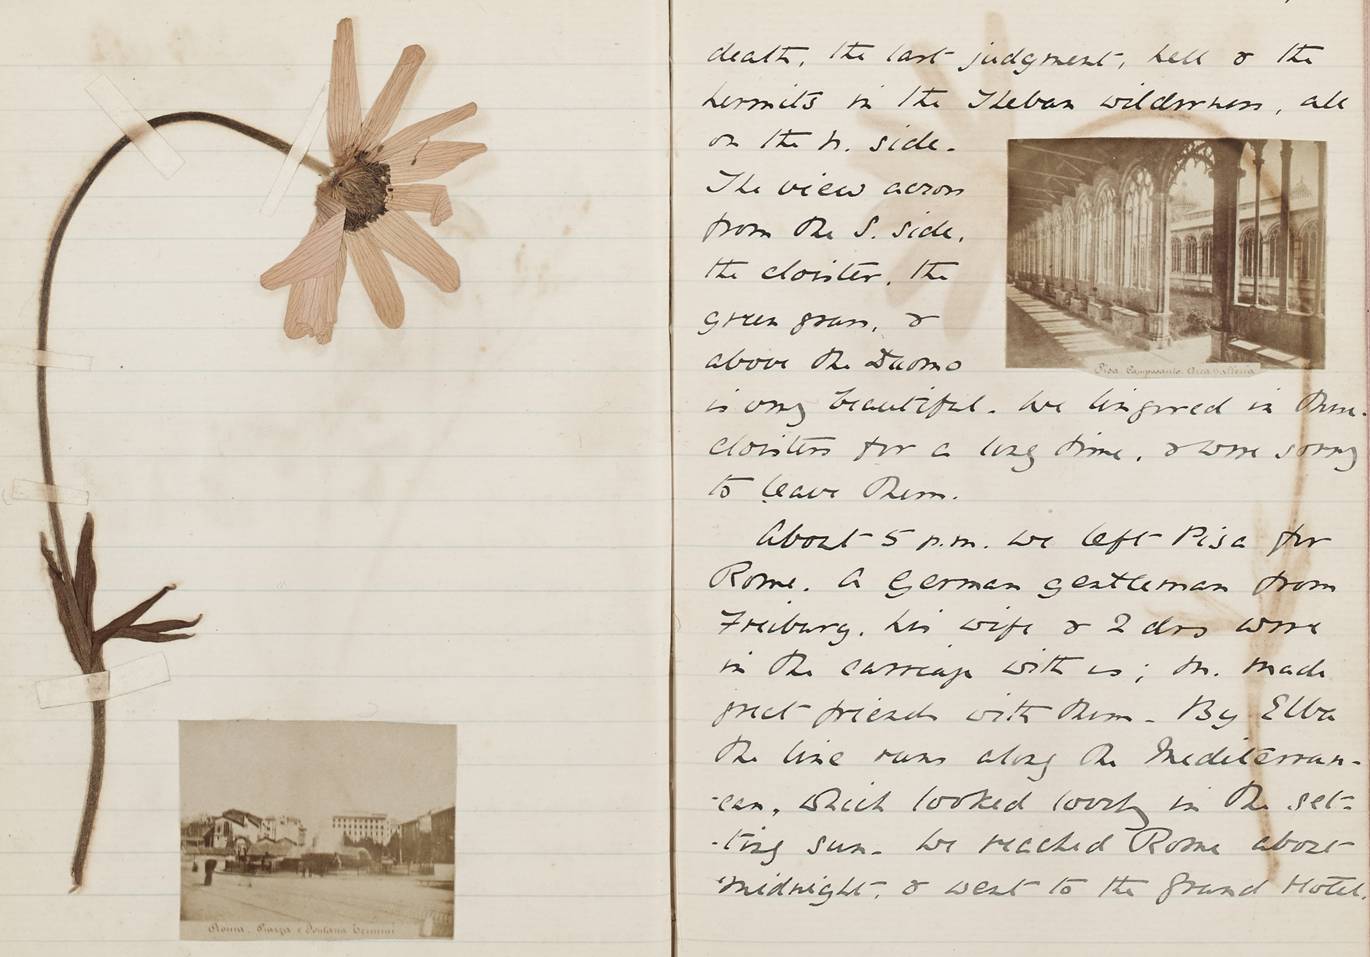 Roma. Piazza e Fontana Termini
death, the last judgment, hell & the
hermits in the Theban wilderness, all
on the N. side.
The view across
from the S. side,
the cloister, the
green grass, &
above the Duomo
is very beautiful. We lingered in these
cloisters for a long time, & were sorry
to leave them.
Pisa. Camposanto.
About 5 p.m. we left Pisa for
Rome. A German gentleman from
Freiburg, his wife & 2 drs were
in the carriage with us; M. made
great friends with them. By Elba
the line runs along the Mediterran-
-ean, which looked lovely in the set-
-ting sun. We reached Rome about
midnight, & went to the Grand Hotel.